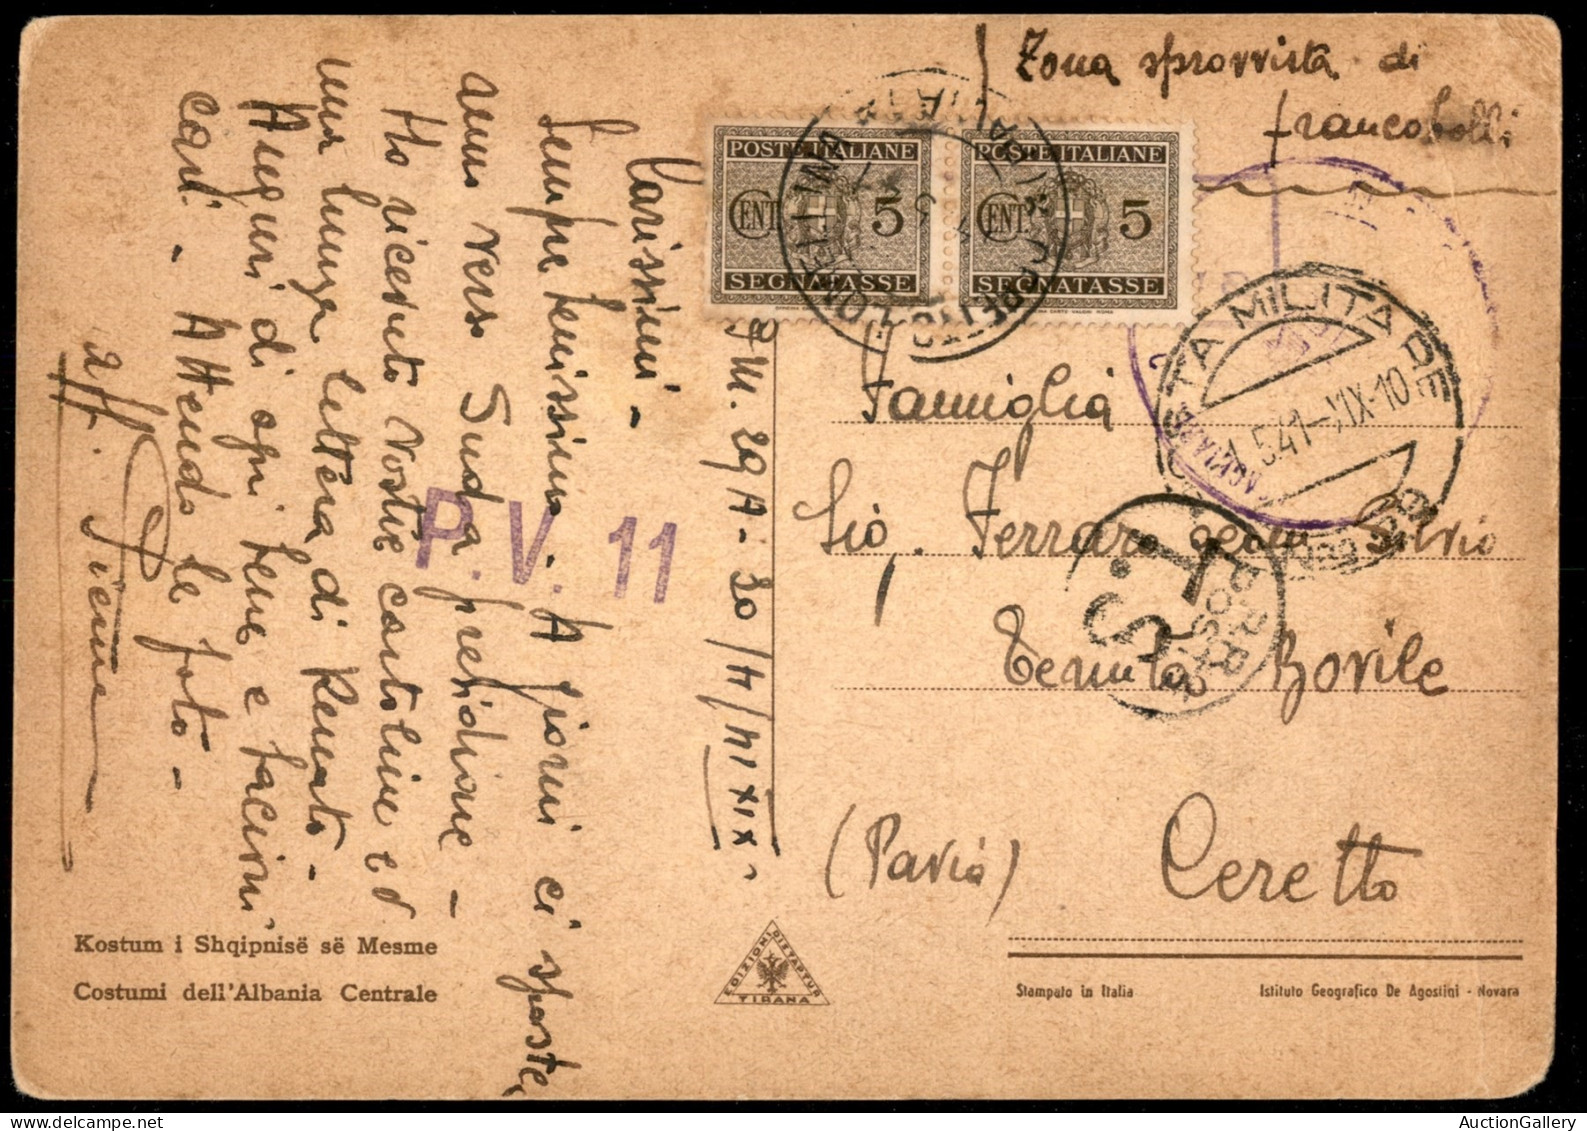 Zona sprovvista di
francobolli
POSTE ITALIANE
CENT. 5
SEGNATASSE
POSTE ITALIANE
CENT. 5
SEGNATASSE
POSTA MILITARE
5.41-XIX-10
P.M. 29A - 30/4/41 XIX.
Carissimi -
Sempre benissimo. A giorni ci sposte,
anno verso Sud a presidione -
Ho ricevuto vostre cartoline ed
una lunga lettera di Renato -
Auguri di ogni bene e bacioni
cari - Attendo le foto -
aff.
P.V. 11
Famiglia
Ferrari
Tenuta Bovile
Ceretto
(Pavia)
T.S.
Kostum i Shqipnisë së Mesme
Costumi dell'Albania Centrale
EDIZIONI DISTAPTUR
TIRANA
Stampato in Italia
Istituto Geografico De Agostini - Novara
AuctionGallery.com